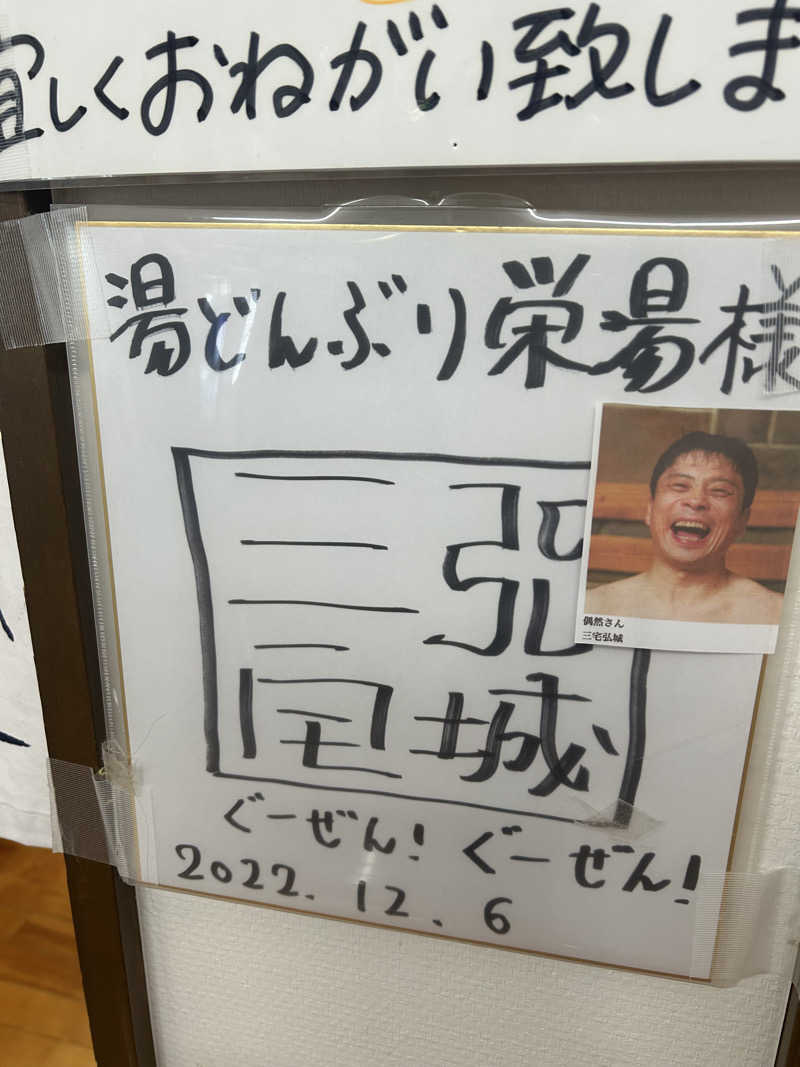 宜しくおねがい致しま
湯どんぶり栄湯様
三宅
弘城
偶然さん
三宅弘城
ぐーぜん！ぐーぜん！
2022.12.6